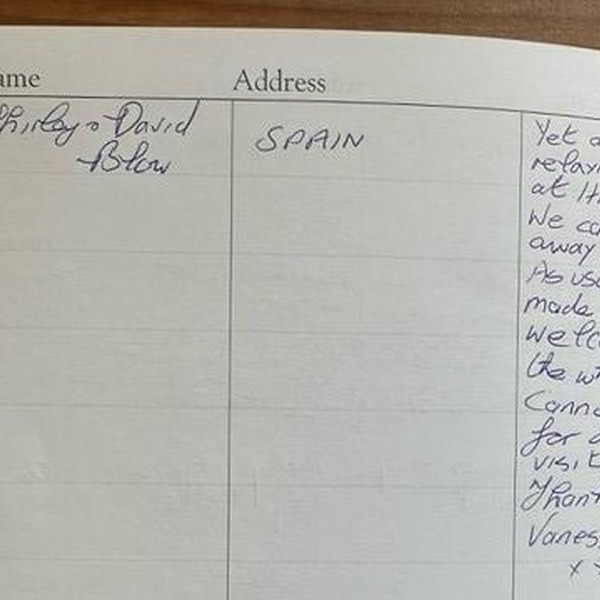 ame Address
hirley & David SPAIN
Blow
Yet a
relax
at H
We ca
away
As usu
made
welco
the w
Canno
for a
visit
Thank
Vaness
x x